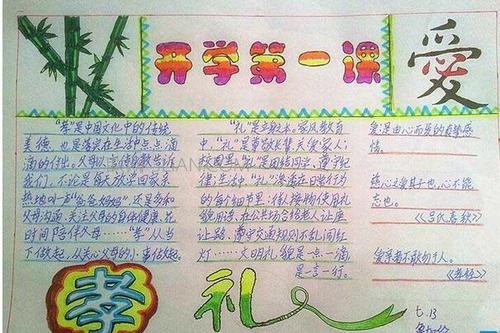 开学第一课
愛
“孝”是中国文化中的传统
美德，也是落实在生活中点点滴
滴的付出。父母以言传身教告诉
我们，不论是每天放学回家亲
热地叫一声“爸爸妈妈”还是多和
父母沟通，关注父母的身体健康，花
时间陪伴父母……“孝”从当
下做起，从关心父母的小事做起。
孝
“礼”是立身之本。家风教育
中，“礼”是尊敬长辈，关爱家人；
校园里，“礼”是团结同学，遵守纪
律；生活中，“礼”渗透在日常行为
的每个细节里：待人接物使用礼
貌用语，在公共场合给老人让座
让路，遵守交通规则不乱闯红
灯……文明礼貌是一点一滴
是一言一行。
礼
爱是由心而发的真挚感
情。
慈心之爱其子也，心不能
忘也。
《吕氏春秋》
爱亲者不敢恶于人。
《孝经》
七.13